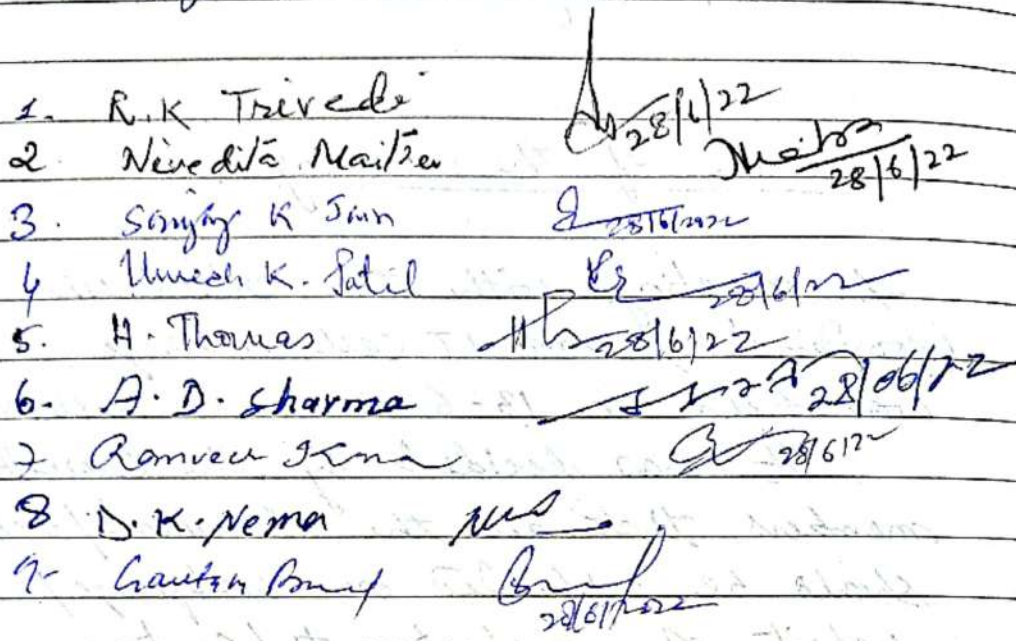 1. R.K Trivedi 28/6/22
2 Nivedita Maitra 28/6/22
3. Sanjay K Jain 28/6/2022
4 Umesh K. Patil 28/6/22
5. H. Thomas 28/6/22
6. A. D. Sharma 28/06/22
7 28/6/22
8 D.K. Nema
9- Gautam 28/6/2022